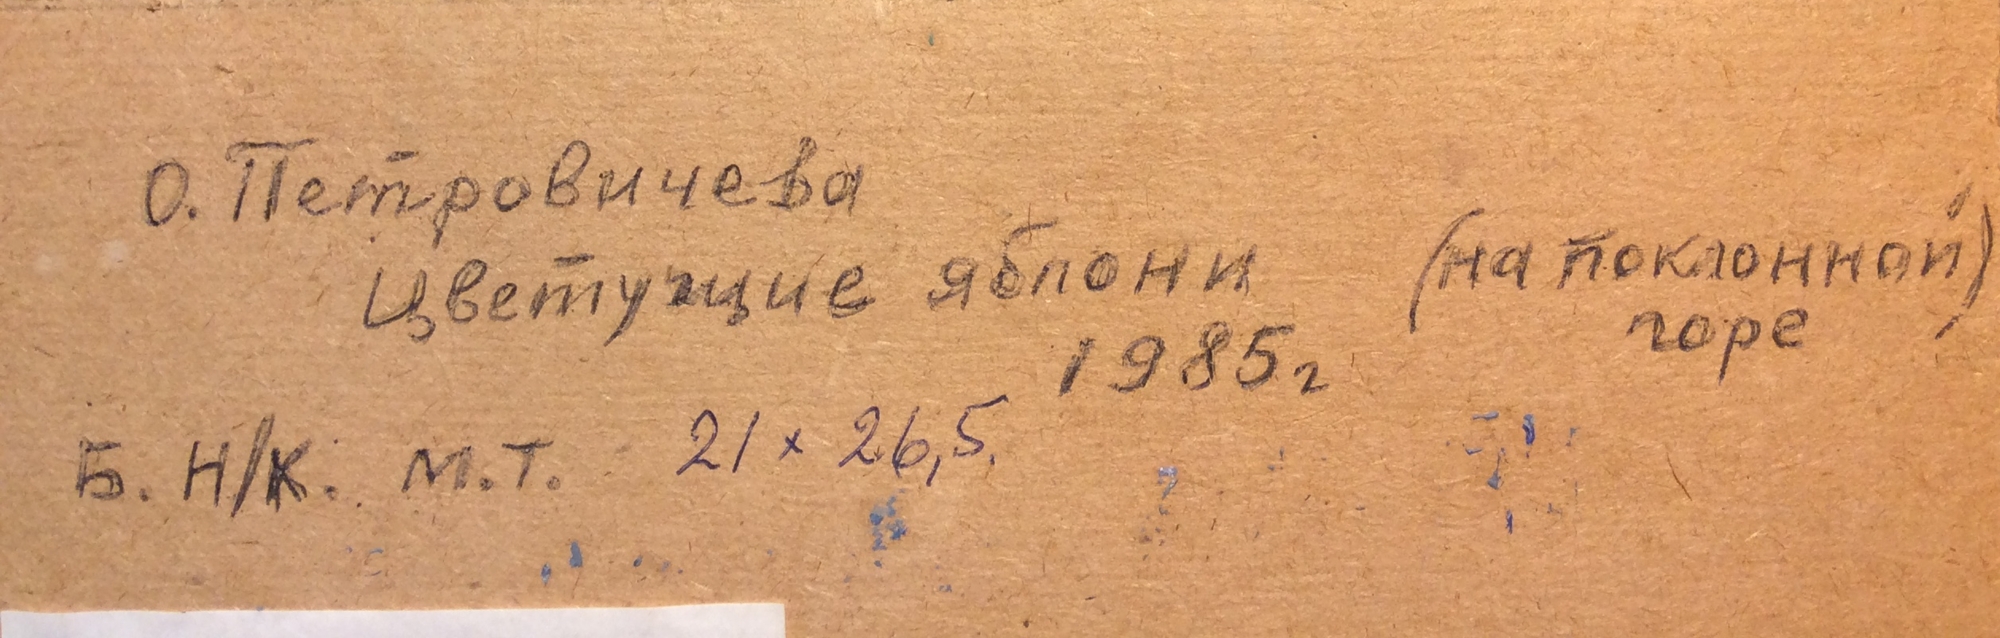 О. Петровичева
Цветущие яблони (на поклонной)
горе
1985г
Б. Н/К. М.Т. 21 x 26,5.